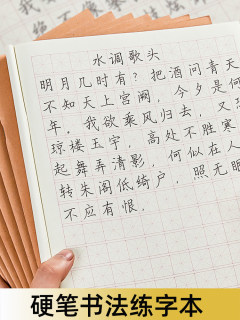 水调歌头
明月几时有？把酒问青天
不知天上宫阙，今夕是何
年。我欲乘风归去，又
琼楼玉宇，高处不胜寒
起舞弄清影，何似在人
转朱阁低绮户，照无眠
不应有恨，
硬笔书法练字本